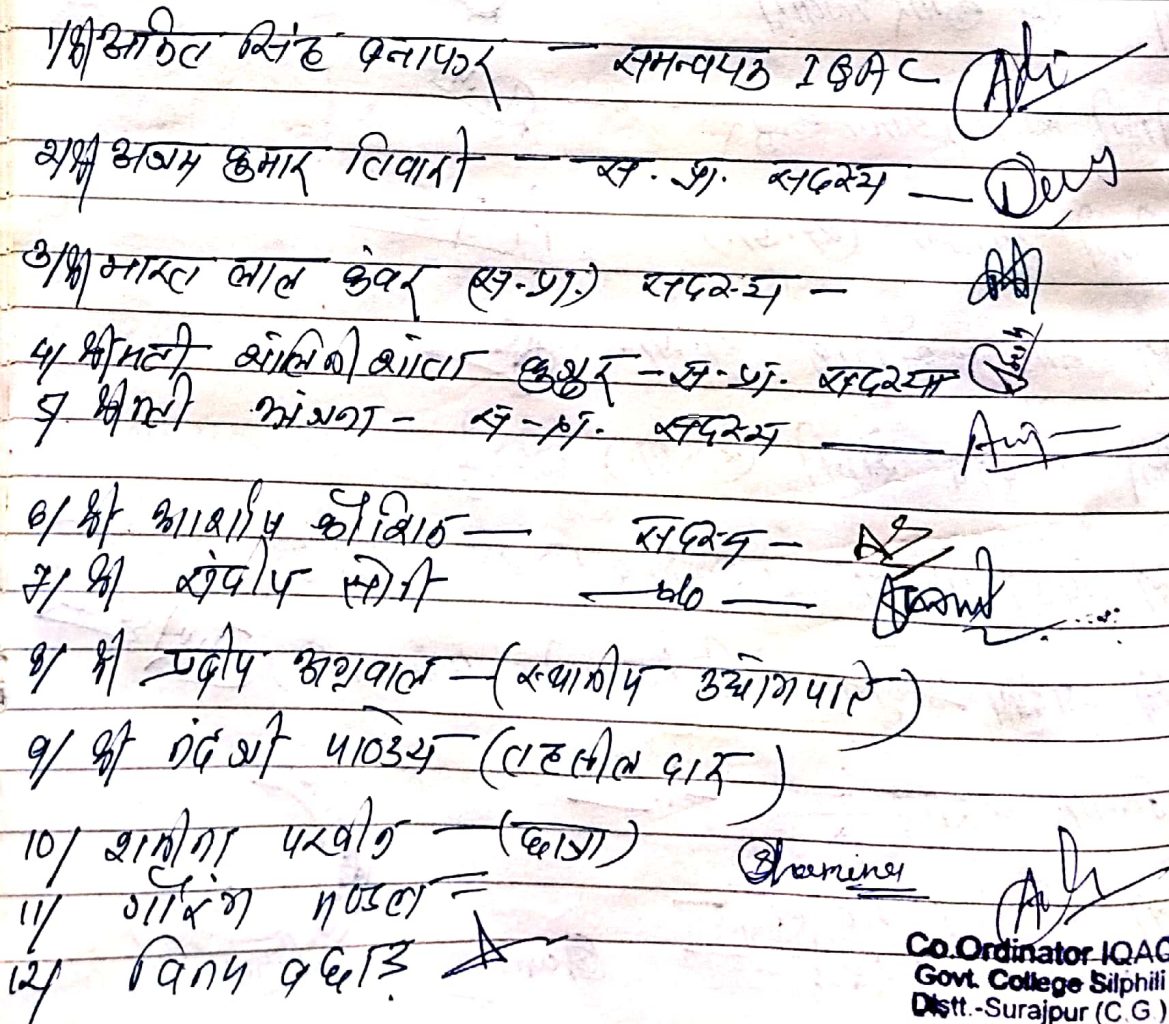 1/ श्री अमित सिंह बनाफर – समन्वयक IQAC
2/ श्री अजय कुमार तिवारी – स. प्रा. सदस्य –
3/ श्री भारत लाल कंवर (स.प्रा.) सदस्य –
4/ श्रीमती शालिनी शांता कुजूर – स.प्रा. सदस्य
5/ श्रीमती अंजना – स.प्रा. सदस्य
6/ श्री आशीष कौशिक – सदस्य –
7/ श्री संदीप सोनी
8/ श्री प्रदीप अग्रवाल – (स्थानीय उद्योगपति)
9/ श्री पाण्डेय (तहसीलदार)
10/ शमीना परवीन – (छात्रा) Shamina
11/ गौरंग मण्डल
12/ विनय
Co.Ordinator IQAC
Govt. College Silphili
Distt.-Surajpur (C.G.)